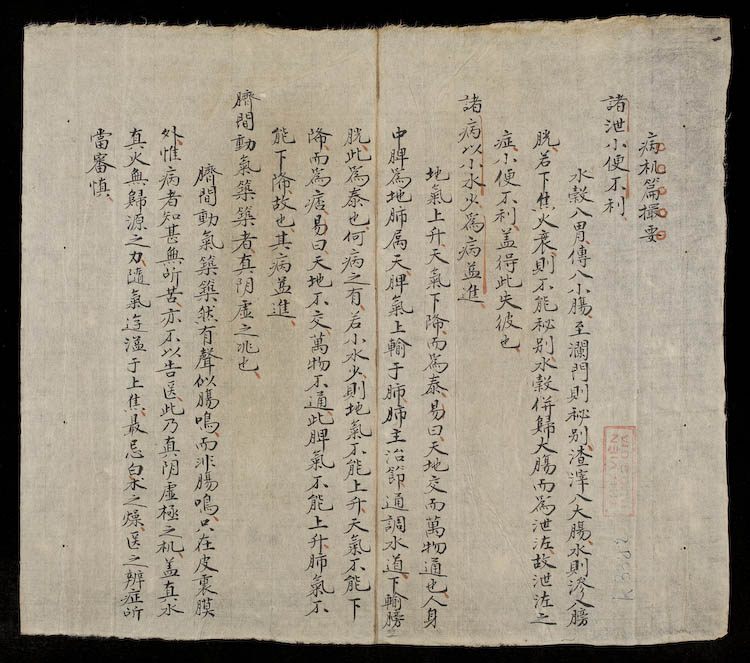 病机篇撮要
諸泄小便不利
水穀入胃傳入小腸至瀾門則秘别渣滓入大腸水則滲入膀
胱若下焦火衰則不能秘别水穀併歸大腸而爲泄泻故泄泻之
症小便不利盖得此失彼也
諸病以小水少爲病益進
地氣上升天氣下降而爲泰易曰天地交而萬物通也人身
中脾爲地肺属天脾氣上輸于肺肺主治節通調水道下輸膀
胱此爲泰也何病之有若小水少則地氣不能上升天氣不能下
降而爲否易曰天地不交萬物不通此脾氣不能上升肺氣不
能下降故也其病益進
臍間動氣築築者真阴虛之兆也
臍間動氣築築然有聲似腸鳴而非腸鳴只在皮裏膜
外惟病者知甚無所苦亦不以告医此乃真阴虛極之机盖真水
真火無歸源之力隨氣泛溢于上焦最忌白朮之燥医之辨症所
當審慎